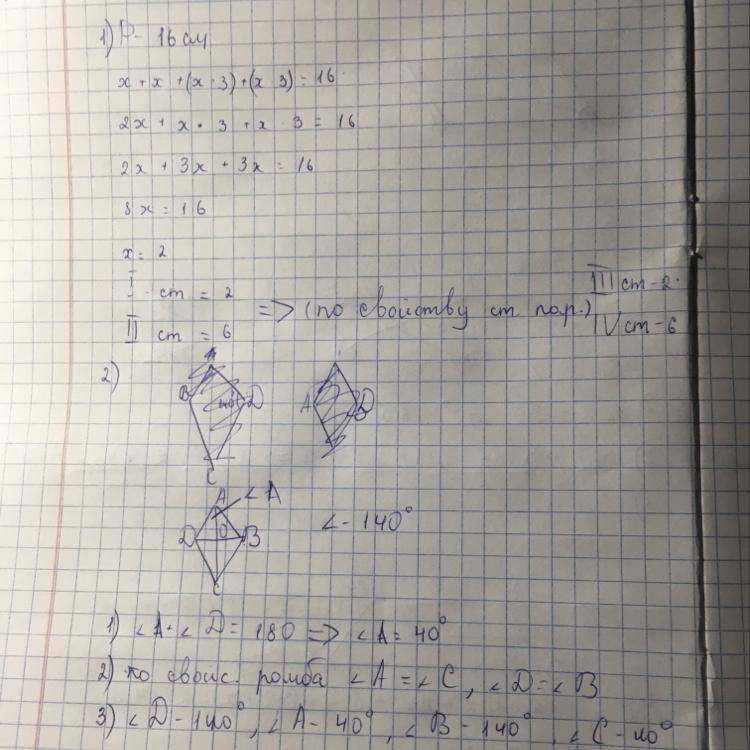 1) P - 16 см
x + x + (x · 3) + (x · 3) = 16
2x + x · 3 + x · 3 = 16
2x + 3x + 3x = 16
8x = 16
x = 2
I ст = 2
II ст = 6
=> (по свойству ст. пар.)
III ст - 2.
IV ст - 6
2)
A
B
140°
D
C
A
D
A
∠A
D
O
B
C
∠ - 140°
1) ∠A + ∠D = 180 => ∠A = 40°
2) по свойс. ромба ∠A = ∠C, ∠D = ∠B
3) ∠D - 140°, ∠A - 40°, ∠B - 140°, ∠C - 40°